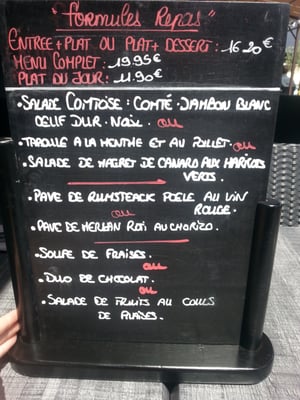 "Formules Repas"
ENTREE+PLAT OU PLAT+ DESSERT: 16.20€
MENU COMPLET: 19.95€
PLAT DU JOUR: 11.90€
• SALADE COMTOISE: COMTÉ. JAMBON BLANC
OEUF DUR. NOIX. ou
• TABOULE A LA MENTHE ET AU POULET. ou
• SALADE DE MAGRET DE CANARD AUX HARICOTS
VERTS.
• PAVE DE RUMSTEACK POELE AU VIN
ROUGE.
ou
• PAVE DE MERLAN ROTI AU CHORIZO.
• SOUPE DE FRAISES.
ou
• DUO DE CHOCOLAT.
ou
• SALADE DE FRUITS AU COULIS
DE FRAISES.